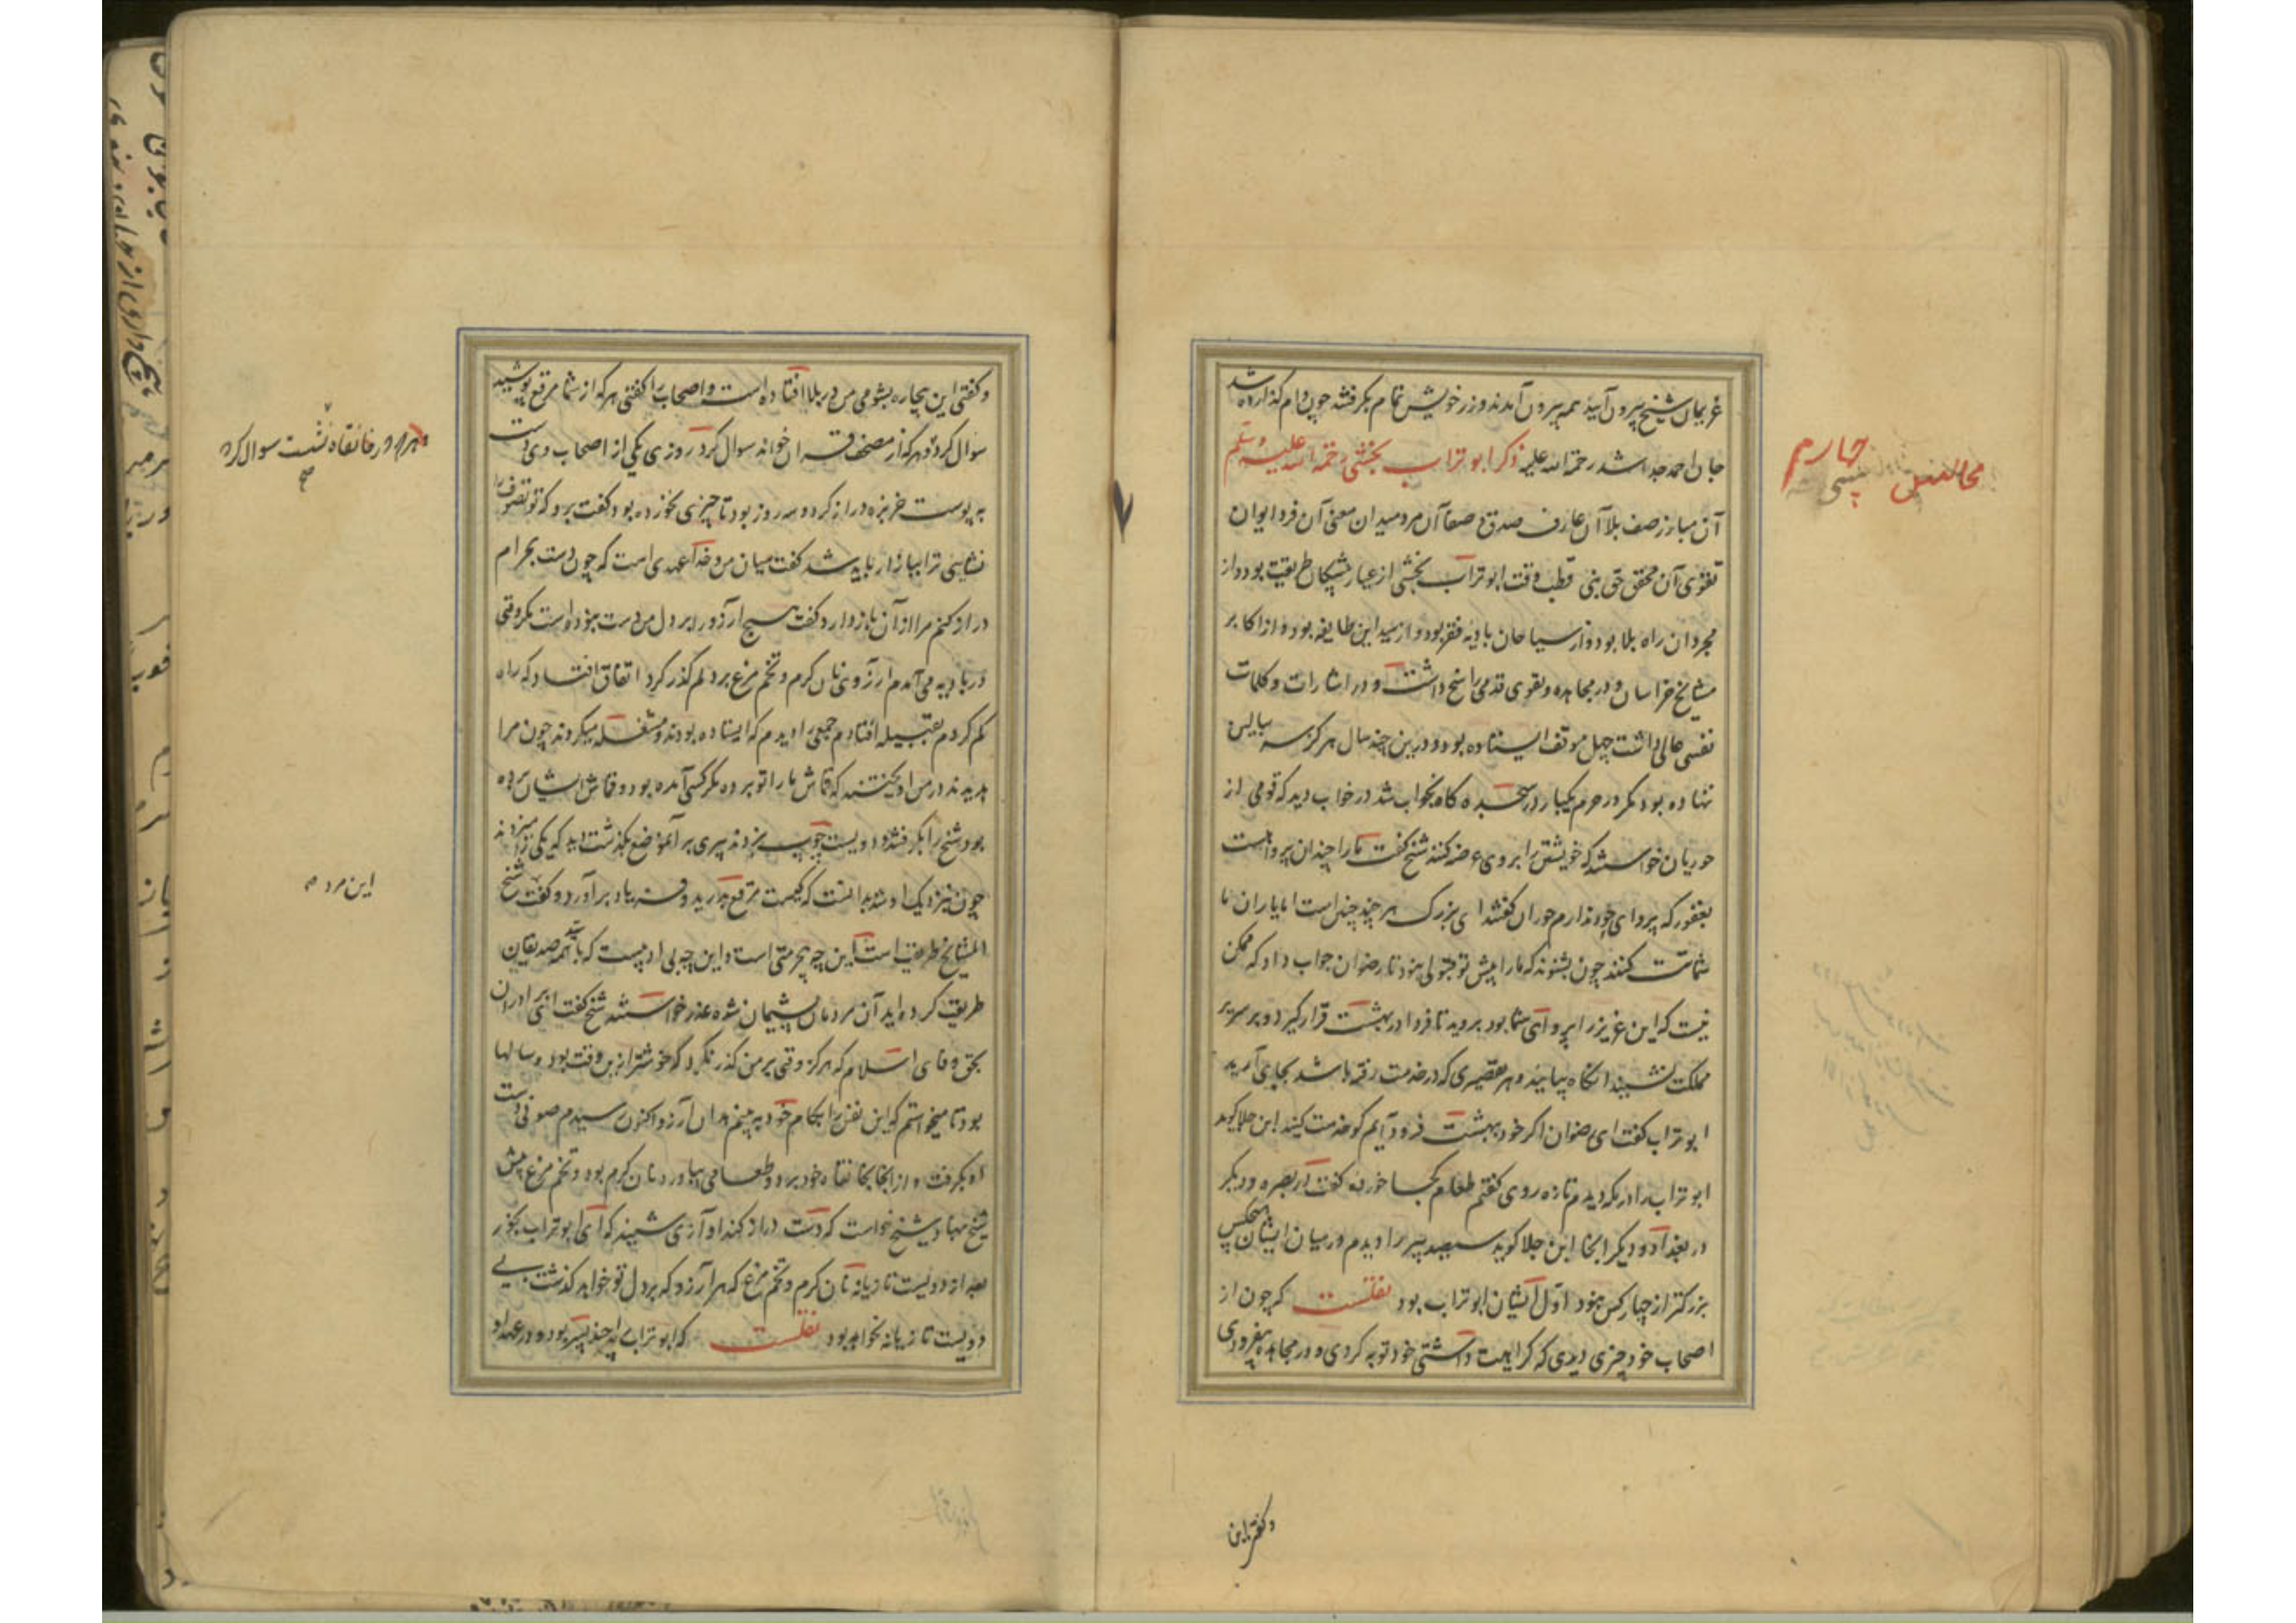 غریمان شیخ بیرون آیید همه بیرون آمدند و زر خویش تمام بگرفتند چون وام گذارده شد
جان احمد جدا شد رحمة الله علیه ذکر ابو تراب نخشبی رحمة الله علیه
آن مبارز صف بلا آن عارف صدق و صفا آن مرد میدان معنی آن فرد ایوان
تقوی آن محقق حق نبی قطب وقت ابو تراب نخشبی از عیار پیشگان طریقت بود و از
مجردان راه بلا بود و از سیاحان بادیه فقر بود و از سید این طایفه بود و از اکابر
مشایخ خراسان و در مجاهده و تقوی قدمی راسخ داشت و در اشارات و کلمات
نفسی عالی داشت چهل موقف ایستاده بود و درین چند سال هرگز سر ببالین
ننهاده بود مگر در حرم یکبار در سحرگاه بخواب شد در خواب دید که قومی از
حوریان خواستند که خویشتن را بر وی عرضه کنند شیخ گفت مارا چندان پروا هست
بغفور که پروای حور ندارم حوران گفتند ای بزرگ هر چند چنین است اما یاران ما
شماتت کنند چون بشنوند که مارا پیش تو قبولی نبود تا رضوان جواب داد که ممکن
نیست که این عزیز را پروای شما بود بروید تا فردا در بهشت قرار گیرد و بر سریر
مملکت نشیند آنگاه بیایید و هر تقصیری که در خدمت رفته باشد بجای آرید
ابو تراب گفت ای رضوان اگر خود ببهشت فرود آیم گو خدمت کنید ابن جلا گوید
ابو تراب را در مکه دیدم تازه روی گفتم طعام کجا خورده گفت در بصره و دیگر
در بغداد و دیگر اینجا ابن جلا گوید سیصد پیر را دیدم در میان ایشان هیچکس
بزرگتر از چهار کس نبود اول ایشان ابو تراب بود نقلست که چون از
اصحاب خود چیزی دیدی که کراهیت داشتی خود توبه کردی و در مجاهده بیفزودی
چهارم
و گفتی این
و گفتی این بیچاره بشومی من در بلا افتاده است و اصحاب را گفتی هر که از شما مرقع پوشید
سوال کرد و هر که از مصحف قرآن خواند سوال کرد روزی یکی از اصحاب وی دست
به پوست خربزه دراز کرد و سه روز بود تا چیزی نخورده بود گفت برو که تو تصوف را
نشایی ترا ببازار باید شد گفت میان من و خدا عهدی است که چون دست بحرام
دراز کنم مرا از آن بازدارد گفت هیچ آرزو را بر دل من دست نبوده است مگر وقتی
در بادیه می آمدم آرزوی نان گرم و تخم مرغ بر دلم گذر کرد اتفاق افتاد که راه
گم کردم بقبیله افتادم جمعی را دیدم که ایستاده بودند و مشغله میکردند چون مرا
بدیدند در من آویختند که قماش ما را تو برده مگر کسی آمده بود و قماش ایشان برده
بود شیخ را بگرفتند و دویست چوب بزدند پیری بر آنموضع بگذشت دید که یکی را میزدند
چون نزدیک او شد بدانست که کیست مرقع بدرید و فریاد برآورد و گفت شیخ
المشایخ طریقت است این چه بیحرمتی است و این چه بی ادبیست که با سید همه صدیقان
طریقت کرده اید آن مردمان پشیمان شده عذر خواستند شیخ گفت ای برادران
بحق وفای اسلام که هرگز وقتی بر من گذر نکرد که خوشتر ازین وقت بود و سالها
بود تا میخواستم که این نفس را بکام خود ببینم بدان آرزو اکنون رسیدم صوفی دست
او بگرفت و از آنجا بخانقاه خود برد و طعامی بیاورد نان گرم بود و تخم مرغ پیش
شیخ نهاد شیخ خواست که دست دراز کند آوازی شنید که ای ابو تراب بخور
بعد از دویست تازیانه نان گرم و تخم مرغ که هر آرزو که بر دل تو خواهد گذشت بی
دویست تازیانه نخواهد بود نقلست که ابو تراب را چند پسر بود و در عهد او
و هر که در خانقاه نشست سوال کرد
صح
این مرد